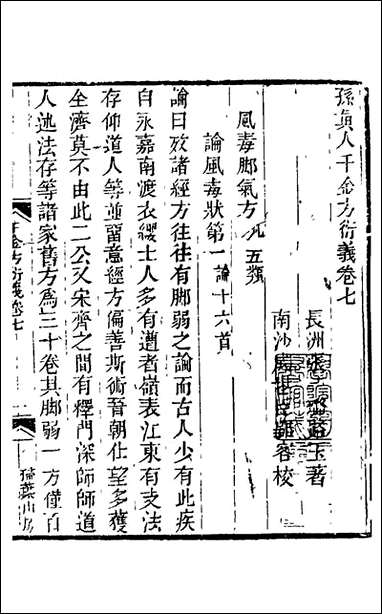 孫眞人千金方衍義卷七
長洲張璐路玉著
南沙席世臣郢客校
風毒脚氣方凡五類
論風毒狀第一論十六首
論曰攷諸經方往往有脚弱之論而古人少有此疾
自永嘉南渡衣纓士人多有遭者嶺表江東有支法
存仰道人等並畱意經方偏善斯術晉朝仕望多獲
全濟莫不由此二公又宋齊之間有釋門深師師道
人述法存等諸家舊方爲三十卷其脚弱一方僅百
千金方衍義卷七
一
掃葉山房